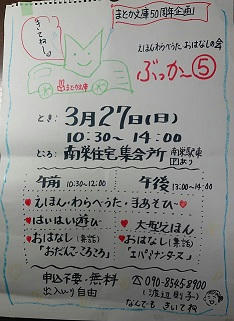 きてね～
まどか文庫50周年企画
えほん・わらべうた・おはなしの会
ぶっか～⑤
まどか文庫
とき：3月27日(日)
10:30～14:00
ところ：南栄住宅集会所
南栄駅東
Pあり
午前 10:30～12:00
午後 13:00～14:00
えほん・わらべうた・手あそび
はいはい遊び
大型えほん
おはなし(素話)
「おだんごころころ」
おはなし(素話)
「エパミナンダス」
申込不要・無料
出入り自由
090-8545-8900
なんでも きいてね